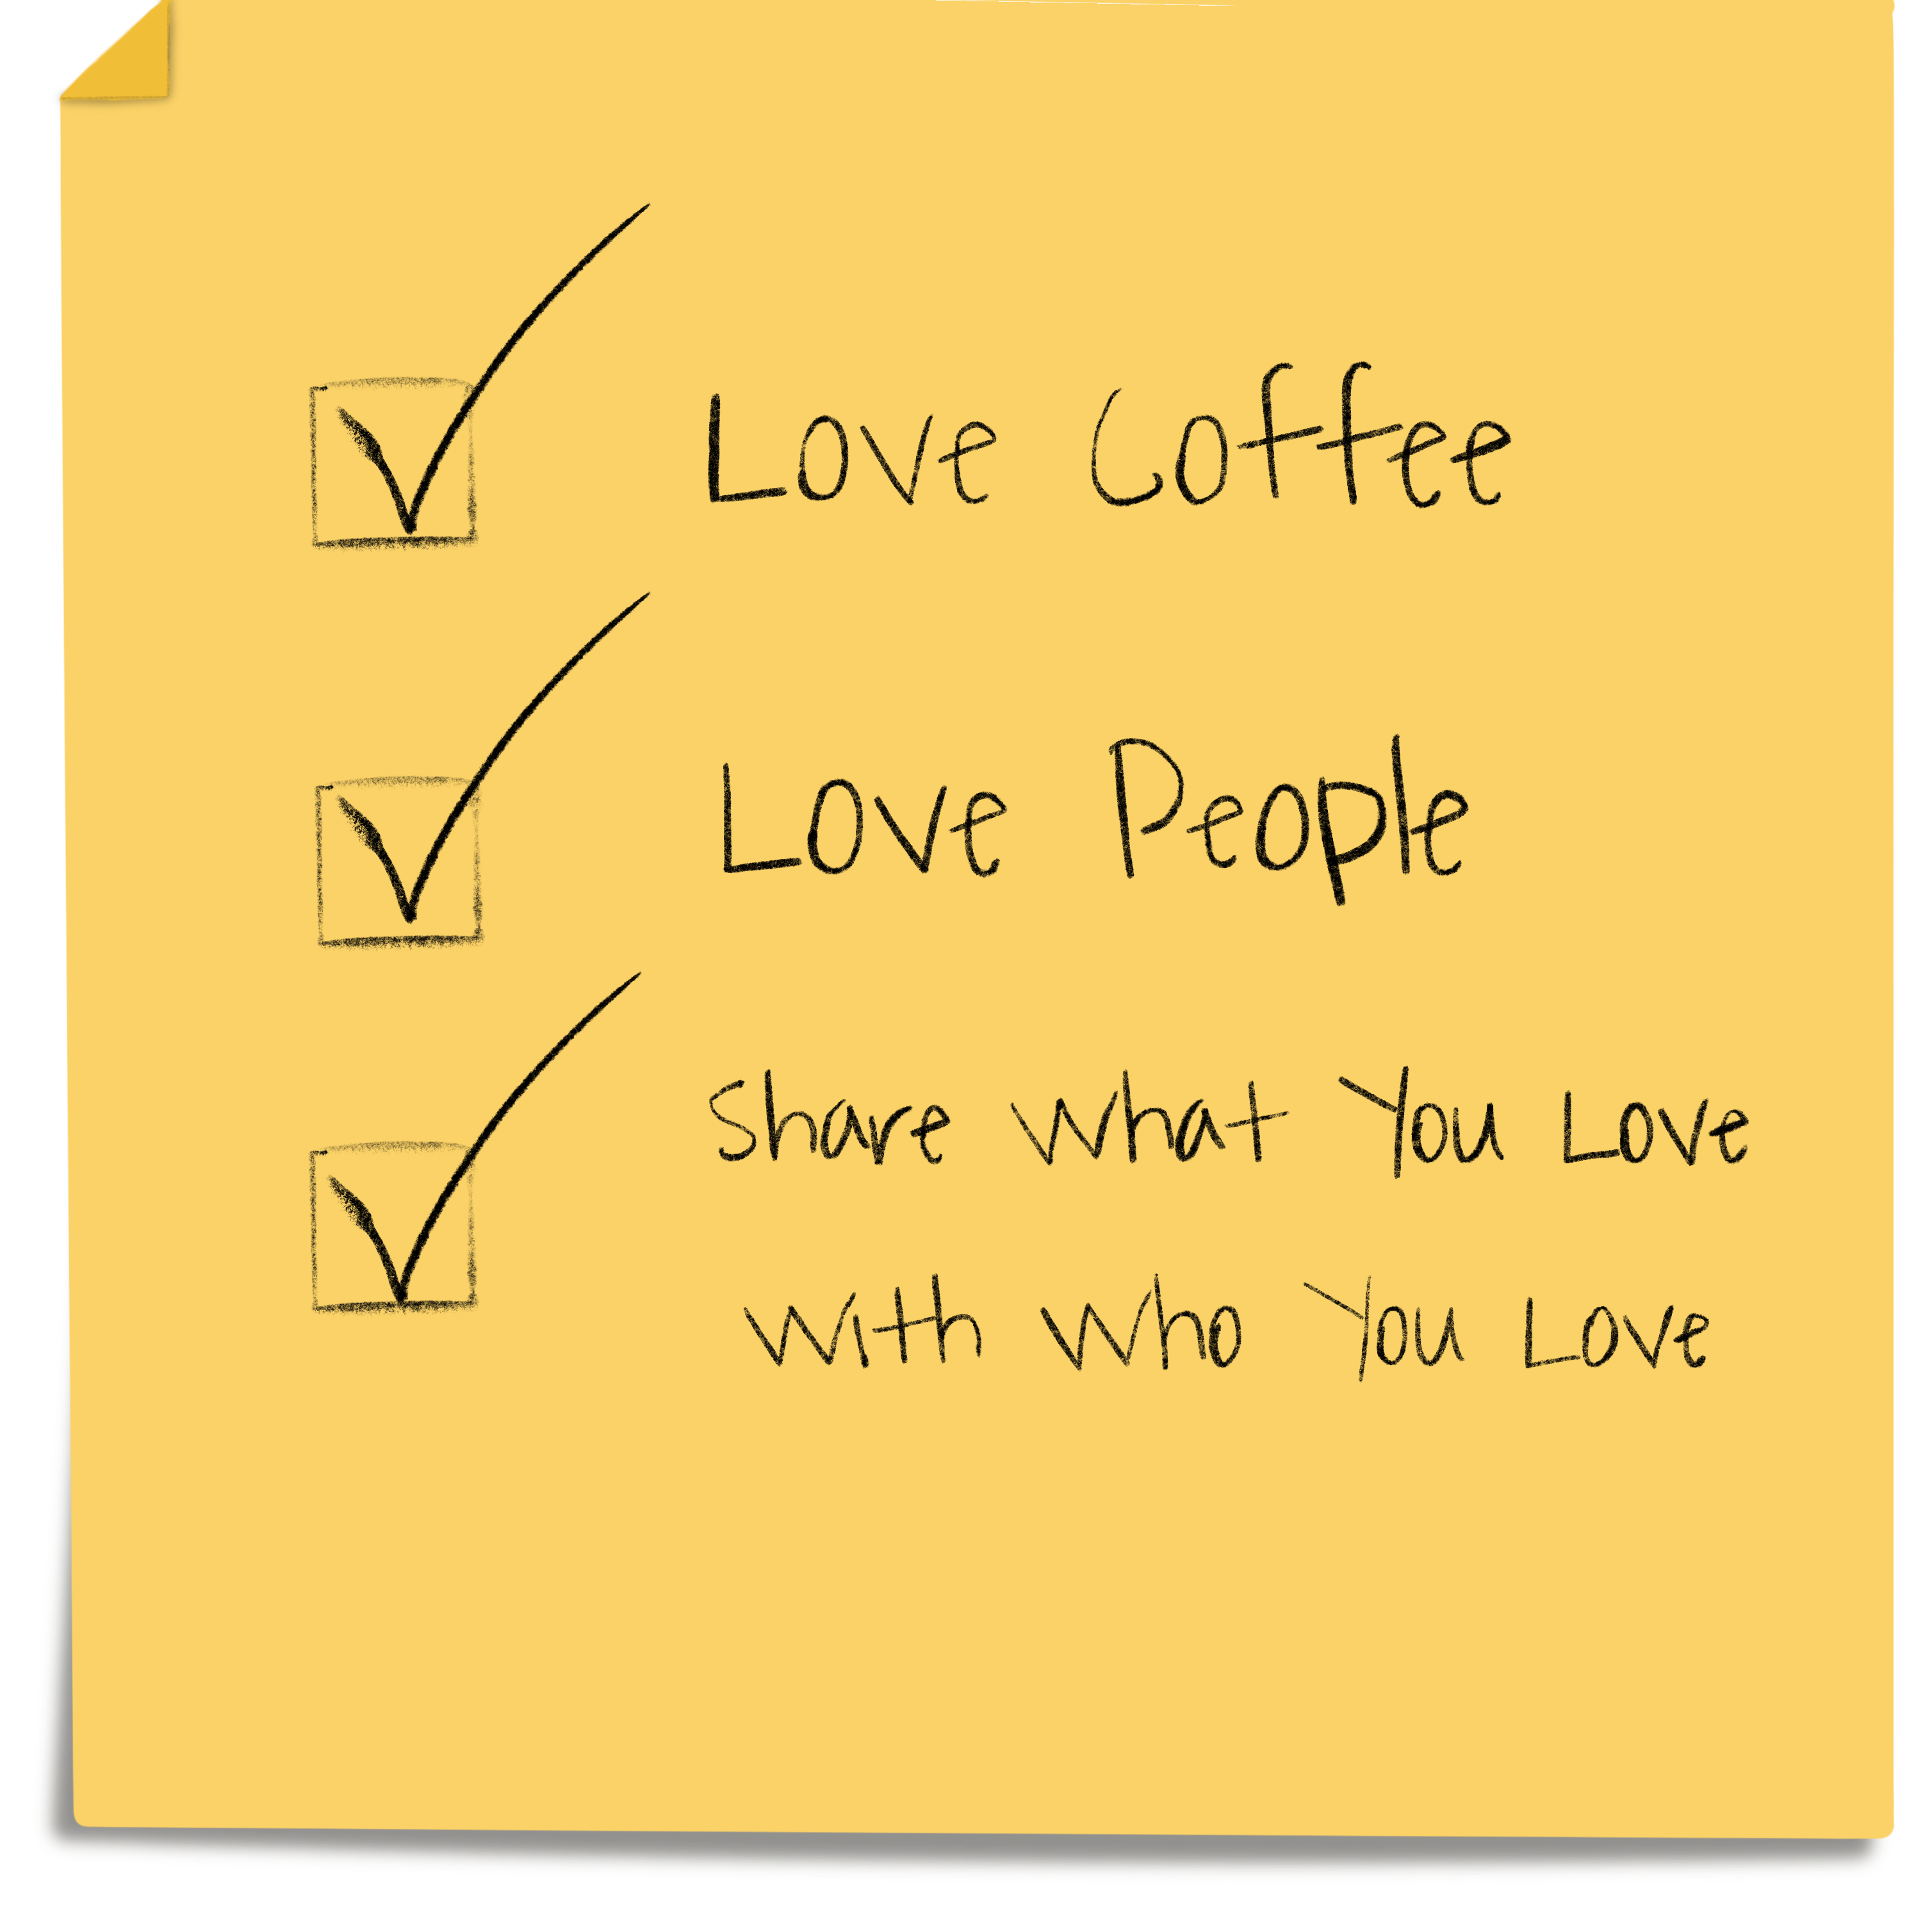 Love Coffee
Love People
Share What You Love
With Who You Love